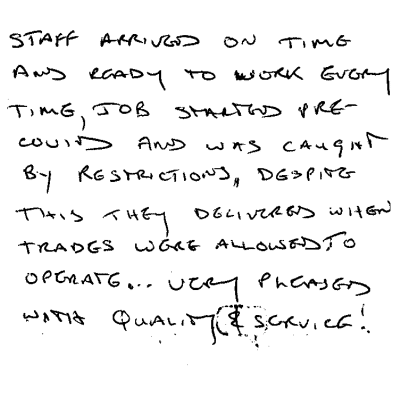 STAFF ARRIVED ON TIME
AND READY TO WORK EVERY
TIME, JOB STARTED PRE-
COVID AND WAS CAUGHT
BY RESTRICTIONS, DESPITE
THIS THEY DELIVERED WHEN
TRADES WERE ALLOWED TO
OPERATE... VERY PLEASED
WITH QUALITY & SERVICE!